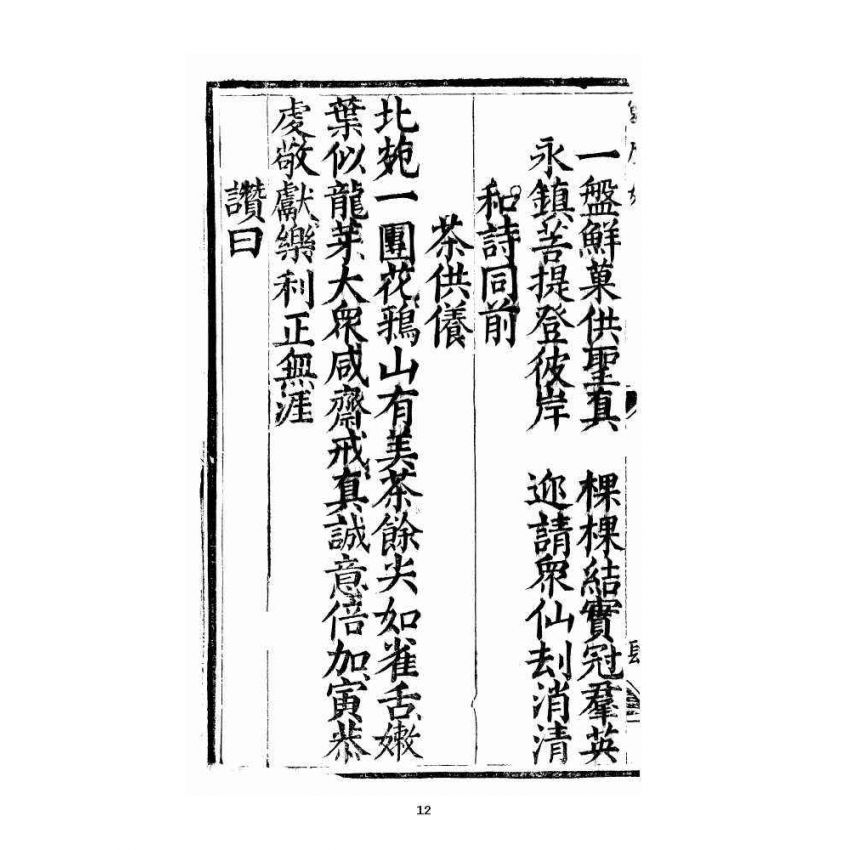 一盤鮮菓供聖真　棵棵結實冠羣英
永鎮菩提登彼岸　迎請衆仙刦消清
和詩同前
茶供儀
北苑一團花鴉山有美茶餘尖如雀舌嫩
葉似龍茅大衆咸齋戒真誠意倍加寅恭
虔敬獻樂利正無涯
讚曰
12